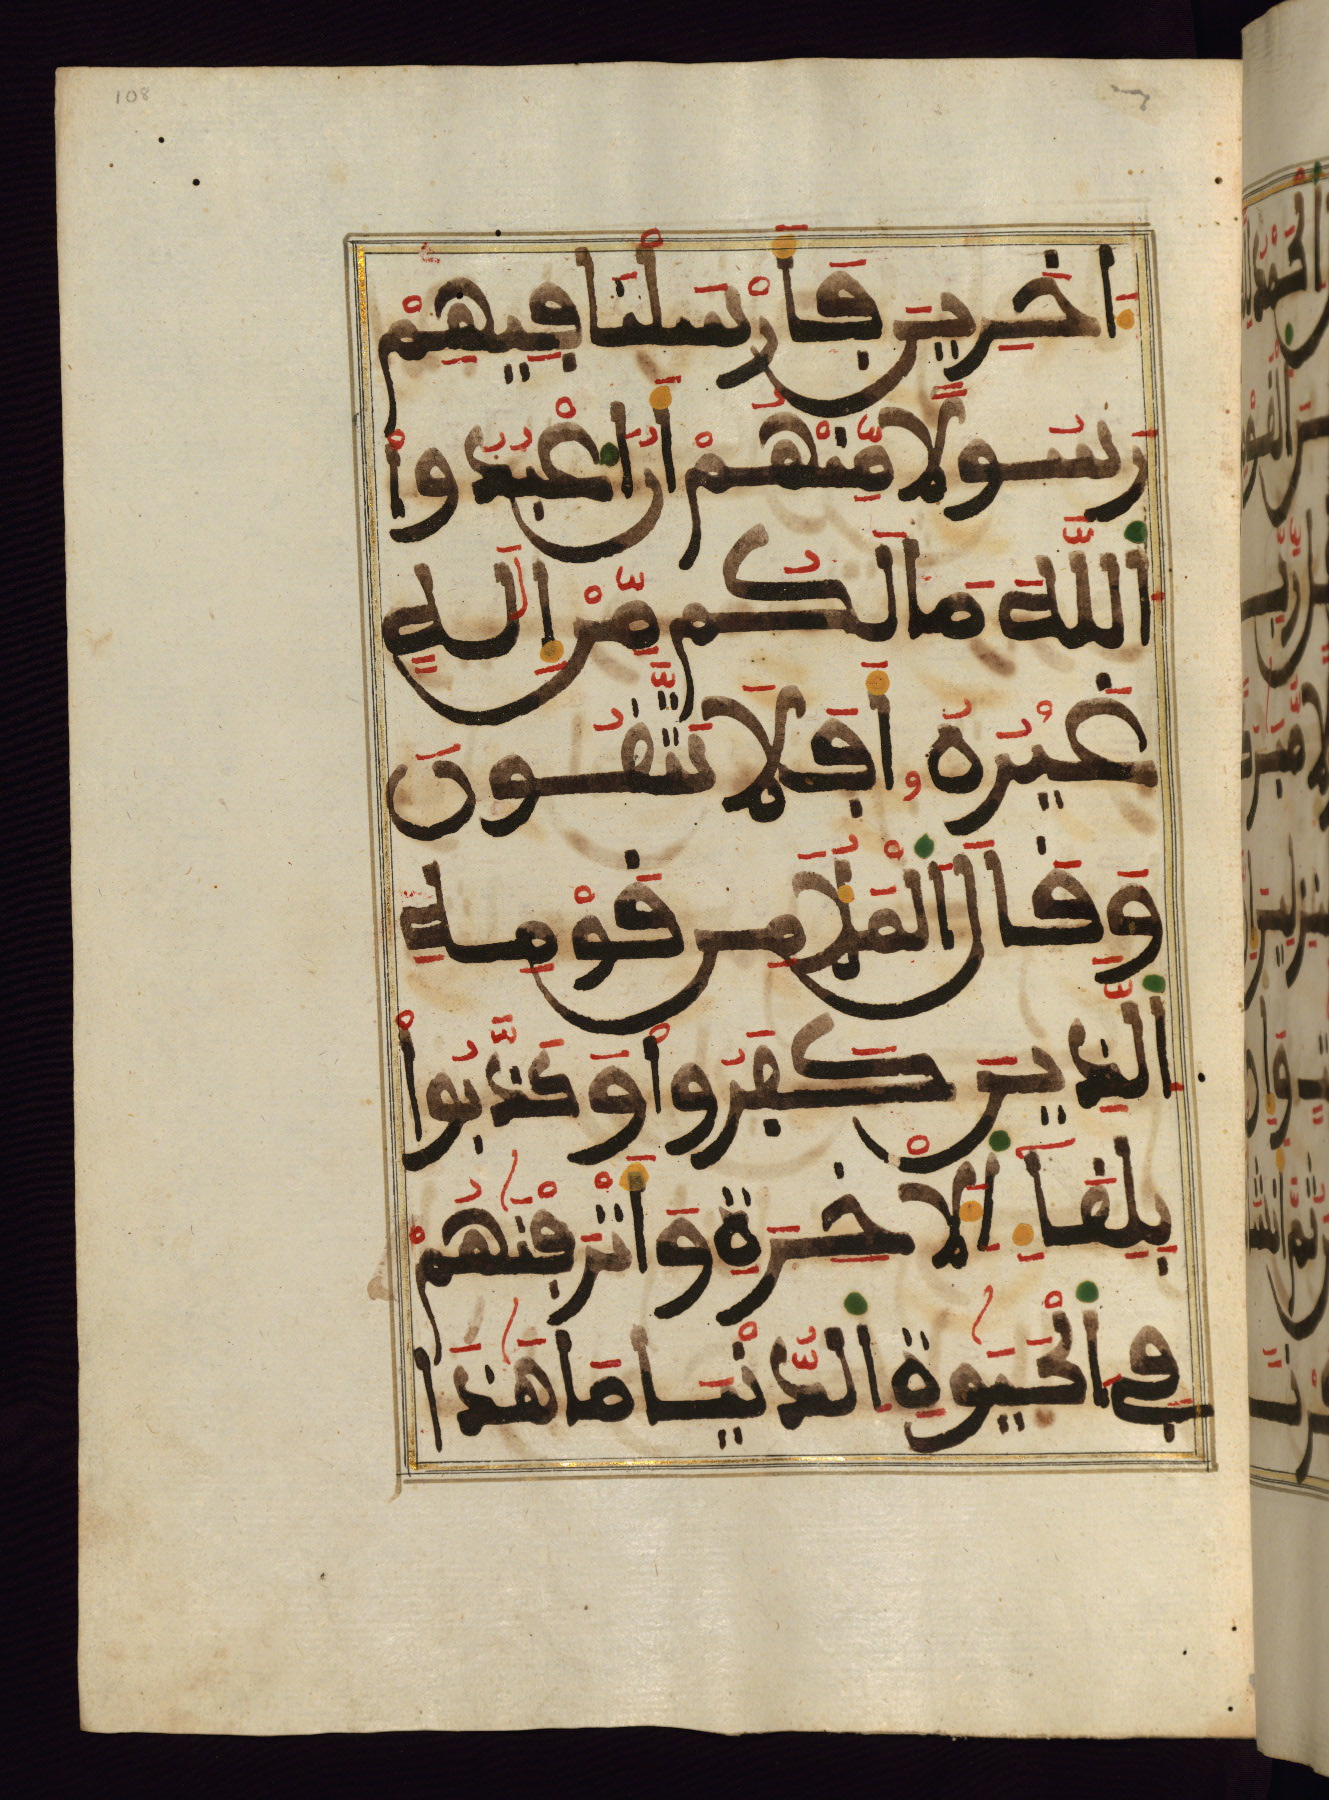 108
اخَرِينَ فَأَرْسَلْنَا فِيهِمْ
رَسُولًا مِّنْهُمْ أَنُ اعْبُدُواْ
اللَّهَ مَا لَكُم مِّنِ الَهٍ
غَيْرُهُ أَفَلَا تَتَّقُونَ
وَقَالَ الْمَلَأُ مِن قَوْمِهِ
الَّذِينَ كَفَرُواْ وَكَذَّبُواْ
بِلِقَآءِ اِلَاخِرَةِ وَأَتْرَفْنَهُمْ
فِي الْحَيَوةِ الدُّنْيَا مَا هَذَا